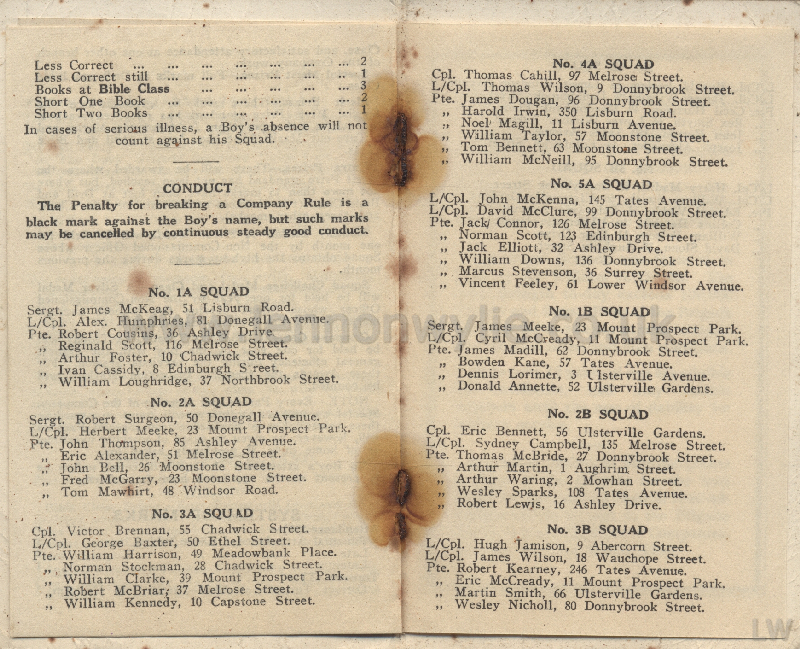 Less Correct ... ... ... ... ... ... 2
Less Correct still ... ... ... ... ... 1
Books at Bible Class ... ... ... ... 3
Short One Book ... ... ... ... ... 2
Short Two Books ... ... ... ... ... 1
In cases of serious illness, a Boy's absence will not
count against his Squad.
CONDUCT
The Penalty for breaking a Company Rule is a
black mark against the Boy's name, but such marks
may be cancelled by continuous steady good conduct.
No. 1A SQUAD
Sergt. James McKeag, 51 Lisburn Road.
L/Cpl. Alex. Humphries, 81 Donegall Avenue.
Pte. Robert Cousins, 36 Ashley Drive.
„ Reginald Scott, 116 Melrose Street.
„ Arthur Foster, 10 Chadwick Street.
„ Ivan Cassidy, 8 Edinburgh S reet.
„ William Loughridge, 37 Northbrook Street.
No. 2A SQUAD
Sergt. Robert Surgeon, 50 Donegall Avenue.
L/Cpl. Herbert Meeke, 23 Mount Prospect Park.
Pte. John Thompson, 85 Ashley Avenue.
„ Eric Alexander, 51 Melrose Street.
„ John Bell, 26 Moonstone Street.
„ Fred McGarry, 23 Moonstone Street.
„ Tom Mawhirt, 48 Windsor Road.
No. 3A SQUAD
Cpl. Victor Brennan, 55 Chadwick Street.
L/Cpl. George Baxter, 50 Ethel Street.
Pte. William Harrison, 49 Meadowbank Place.
„ Norman Stockman, 28 Chadwick Street.
„ William Clarke, 39 Mount Prospect Park.
„ Robert McBriar, 37 Melrose Street.
„ William Kennedy, 10 Capstone Street.
No. 4A SQUAD
Cpl. Thomas Cahill, 97 Melrose Street.
L/Cpl. Thomas Wilson, 9 Donnybrook Street.
Pte. James Dougan, 96 Donnybrook Street.
„ Harold Irwin, 350 Lisburn Road.
„ Noel Magill, 11 Lisburn Avenue.
„ William Taylor, 57 Moonstone Street.
„ Tom Bennett, 63 Moonstone Street.
„ William McNeill, 95 Donnybrook Street.
No. 5A SQUAD
L/Cpl. John McKenna, 145 Tates Avenue.
L/Cpl. David McClure, 99 Donnybrook Street.
Pte. Jack Connor, 126 Melrose Street.
„ Norman Scott, 123 Edinburgh Street.
„ Jack Elliott, 32 Ashley Drive.
„ William Downs, 136 Donnybrook Street.
„ Marcus Stevenson, 36 Surrey Street.
„ Vincent Feeley, 61 Lower Windsor Avenue.
No. 1B SQUAD
Sergt. James Meeke, 23 Mount Prospect Park.
L/Cpl. Cyril McCready, 11 Mount Prospect Park.
Pte. James Madill, 62 Donnybrook Street.
„ Bowden Kane, 57 Tates Avenue.
„ Dennis Lorimer, 3 Ulsterville Avenue.
„ Donald Annette, 52 Ulsterville Gardens.
No. 2B SQUAD
Cpl. Eric Bennett, 56 Ulsterville Gardens.
L/Cpl. Sydney Campbell, 135 Melrose Street.
Pte. Thomas McBride, 27 Donnybrook Street.
„ Arthur Martin, 1 Aughrim Street.
„ Arthur Waring, 2 Mowhan Street.
„ Wesley Sparks, 108 Tates Avenue.
„ Robert Lewis, 16 Ashley Drive.
No. 3B SQUAD
L/Cpl. Hugh Jamison, 9 Abercorn Street.
L/Cpl. James Wilson, 18 Wauchope Street.
Pte. Robert Kearney, 246 Tates Avenue.
„ Eric McCready, 11 Mount Prospect Park.
„ Martin Smith, 66 Ulsterville Gardens.
„ Wesley Nicholl, 80 Donnybrook Street.
LW